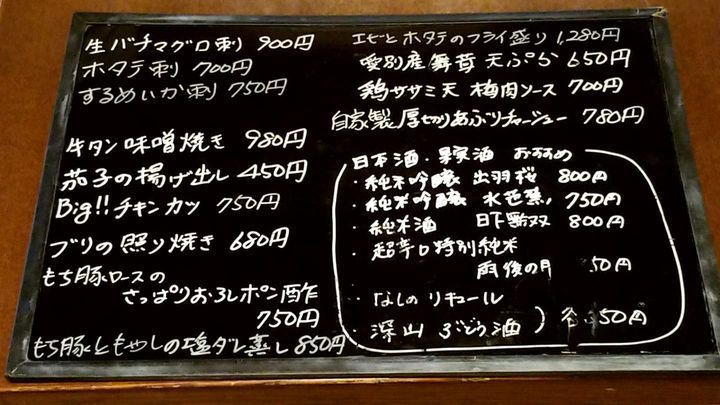 生バチマグロ刺 900円
ホタテ刺 700円
するめいか刺 750円
牛タン味噌焼き 980円
茄子の揚げ出し 450円
Big!!チキンカツ 750円
ブリの照り焼き 680円
もち豚ロースの
さっぱりおろしポン酢
750円
もち豚ともやしの塩ダレ蒸し 850円
エビとホタテのフライ盛り 1,280円
愛別産舞茸 天ぷら 650円
鶏ササミ天 梅肉ソース 700円
自家製厚切りあぶりチャーシュー 780円
日本酒・果実酒 おすすめ
・純米吟醸 出羽桜 800円
・純米吟醸 水芭蕉 750円
・純米酒 日下無双 800円
・超辛口特別純米
雨後の月 50円
・なしのリキュール
・深山ぶどう酒 ) 各 50円